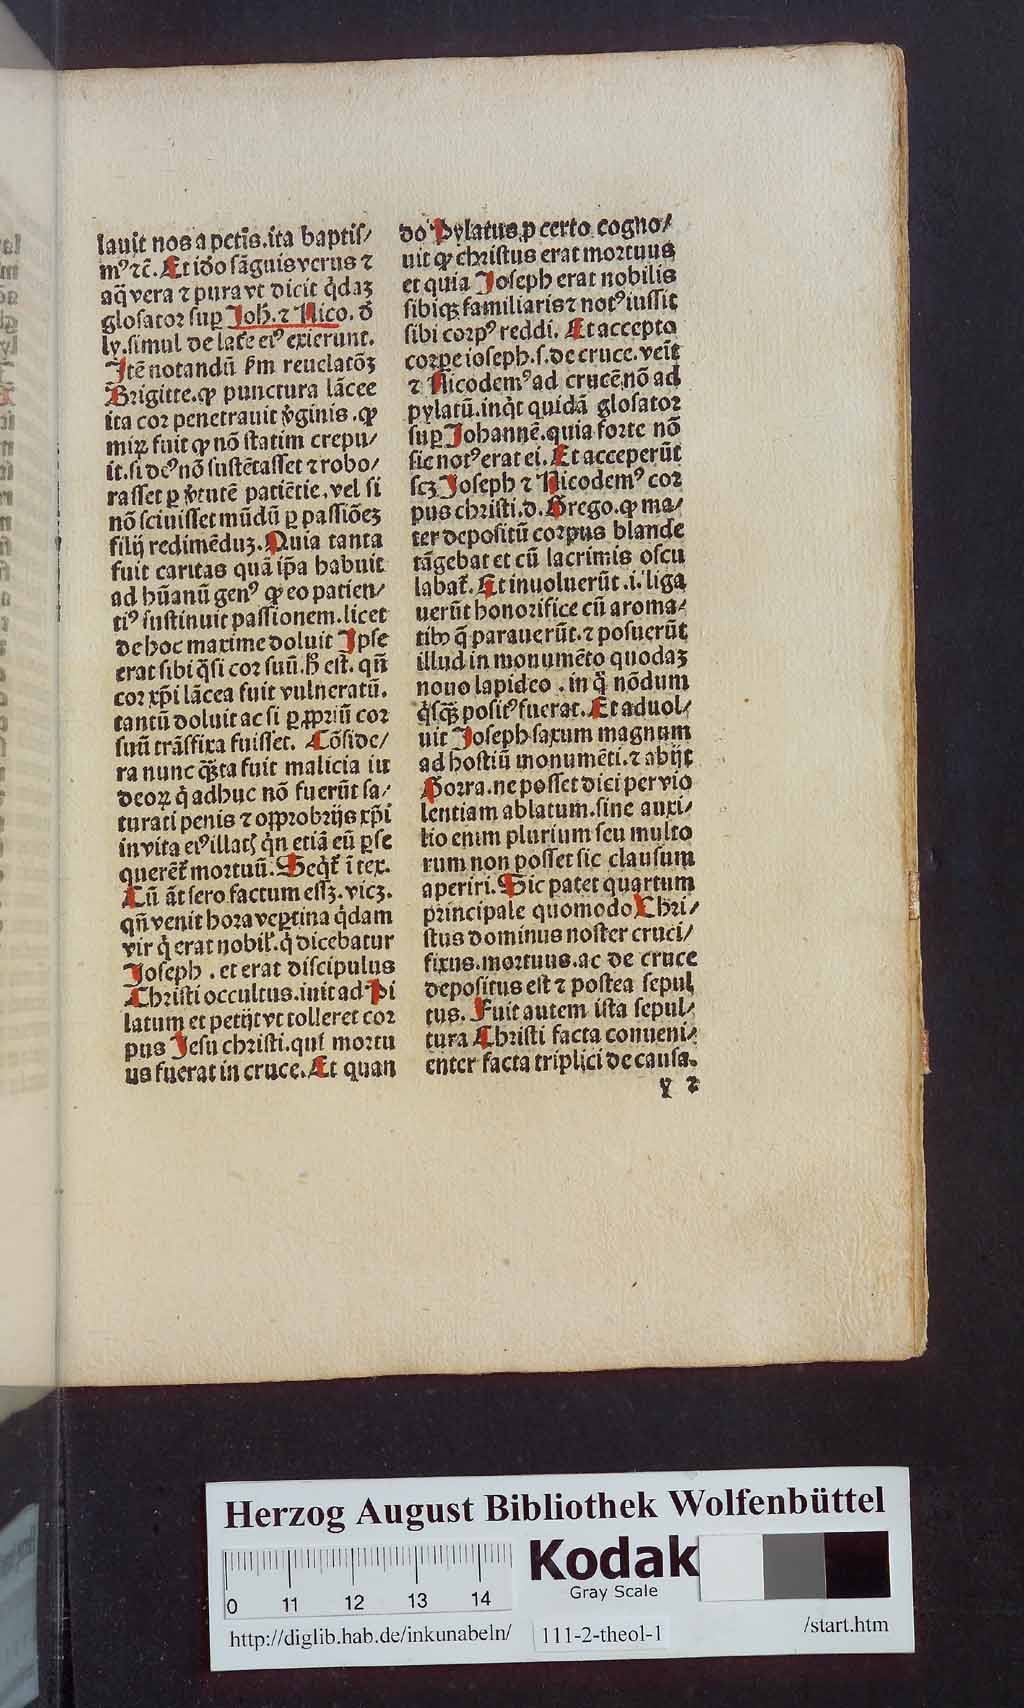 lauit nos a pctīs.ita baptiſ/
mꝰ ⁊c̄. Et iđo ſāguis verus ⁊
aq̄ vera ⁊ pura vt dicit q̇daꝫ
gloſator ſuꝑ Joh̄. ⁊ Nico. đ
ly. ſimul de lat̄e eiꝰ exierunt.
Jtē notandū ẜm reuelatōꝫ
Brigitte. ꝙ punctura lācee
ita cor penetrauit v̇ginis. ꝙ
miꝝ fuit ꝙ nō ſtatim crepu/
it. ſi deꝰ nō ſuſtētaſſet ⁊ robo/
raſſet ꝑ v̇tutē patiētie. vel ſi
nō ſciuiſſet mūdū ꝑ paſſiōeꝫ
filij redimēduꝫ. Quia tanta
fuit caritas quā ip̄a habuit
ad hūanū genꝰ ꝙ eo patien/
tiꝰ ſuſtinuit paſſionem. licet
de hoc maxime doluit Jpſe
erat ſibi q̇ſi cor ſuū. h̄ eſt. qn̄
cor xp̄i lācea fuit vulneratū.
tantū doluit ac ſi ꝑ ꝓpriū cor
ſuū trāſfixa fuiſſet. Cōſide/
ra nunc q̄ꝫta fuit malicia iu
deoꝝ q̇ adhuc nō fuerūt ſa/
turati penis ⁊ opprobrijs xp̄i
in vita eiꝰ illatꝭ q̇n etiā eū ꝑſe
querēt̄ mortuū. Seq̇t̄ ī tex.
Cū āt ſero factum eſſꝫ. vicꝫ.
qn̄ venit hora veꝑtina q̇dam
vir q̇ erat nobil̄. q̇ dicebatur
Joſeph. et erat diſcipulus
Chriſti occultus. iuit ad Pi
latum et petijt vt tolleret cor
pus Jeſu chriſti. qui mortu
us fuerat in cruce. Et quan
do Pylatus ꝓ certo cogno/
uit ꝙ chriſtus erat mortuus
et quia Joſeph erat nobilis
ſibiqꝫ familiaris ⁊ notꝰ iuſſit
ſibi corpꝰ reddi. Et accepto
corpe ioſeph. ſ. de cruce. veīt
⁊ Nicodemꝰ ad crucē. nō ad
pylatū. inq̇t quidā gloſator
ſuꝑ Johannē. quia forte nō
ſic notꝰ erat ei. Et acceperūt
ſcꝫ Joſeph ⁊ Nicodemꝰ cor
pus chriſti. d. Grego. ꝙ ma/
ter depoſitū corpus blande
tāgebat et cū lacrimis oſcu
labat̄. Et inuoluerūt. i. liga
uerūt honorifice cū aroma/
tibꝰ q̄ parauerūt. ⁊ poſuerūt
illud in monumēto quodaꝫ
nouo lapideo. in q̇ nōdum
q̇ſq̄ꝫ poſitꝰ fuerat. Et aduol/
uit Joſeph ſaxum magnum
ad hoſtiū monumēti. ⁊ abijt
Gorra. ne poſſet dici per vio
lentiam ablatum. ſine auxi/
lio enim plurium ſeu multo
rum non poſſet ſic clauſum
aperiri. Sic patet quartum
principale quomodo Chri/
ſtus dominus noſter cruci/
fixus. mortuus. ac de cruce
depoſitus eſt ⁊ poſtea ſepul
tus. Fuit autem iſta ſepul/
tura Chriſti facta conueni/
enter facta triplici de cauſa.
y 2
Herzog August Bibliothek Wolfenbüttel
Kodak
Gray Scale
0 11 12 13 14
http://diglib.hab.de/inkunabeln/ 111-2-theol-1 /start.htm